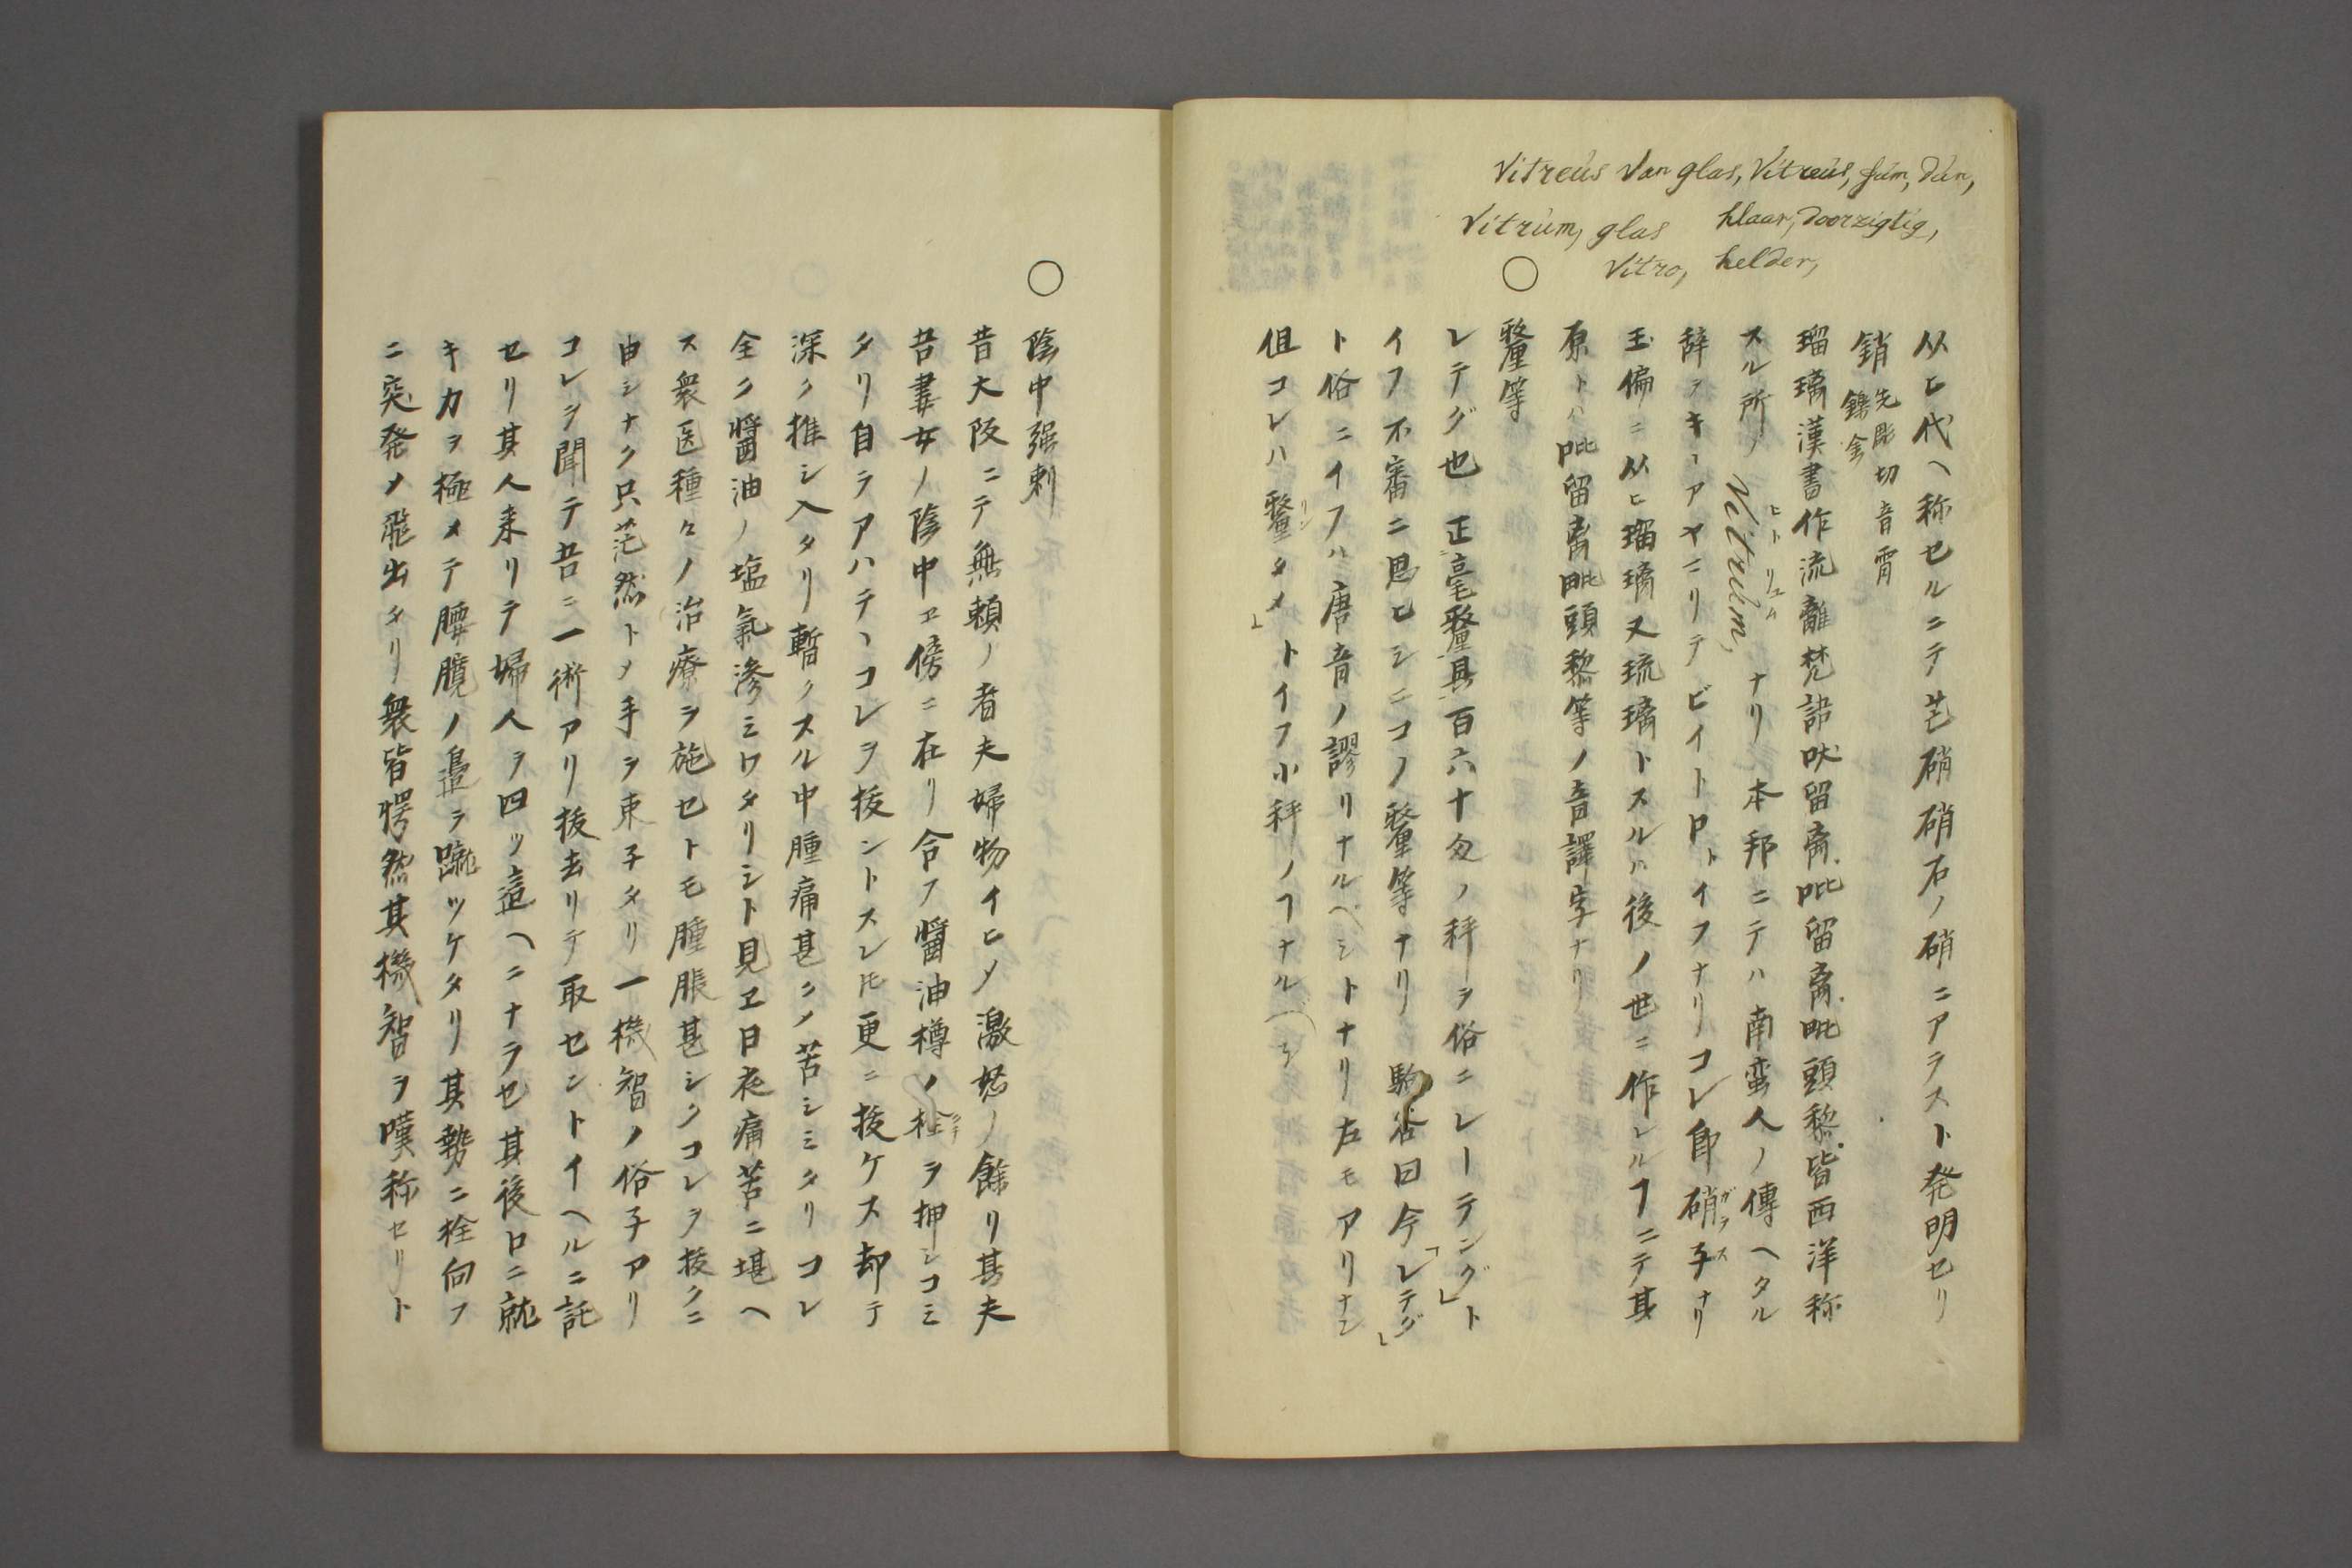 Vitreüs Van glas, Vitreüs, füm, dün,
Vitrüm, glas klaar, doorzigtig,
Vitro, helder,
从ヒ代ヘ称セルニテ芒硝硝石ノ硝ニアラスト発明セリ
銷 先彫切音霄 鑠金
瑠璃漢書作流離梵語吠留离吡留离毗頭黎皆西洋称
スル所ノVitrüm,ヒトリユムナリ本邦ニテハ南蛮人ノ傳ヘタル
辞ヲキヽアヤマリテビイトロトイフナリコレ即硝子ガラスナリ
玉偏ニ从ヒ瑠璃又琉璃トスルハ後ノ世ニ作レルヿニテ其
原トハ吡留离毗頭黎等ノ音譯字ナリ
○
釐等
レテグ也正毫釐具百六十匁ノ秤ヲ俗ニレーテングト
イフ不審ニ思ヒシニコノ釐等ナリ 駒谷曰今「レテグ」
ト俗ニイフハ唐音ノ謬リナルベシトナリ左モアリナン
但コレハ釐リンタメ」トイフ小秤ノヿナルベシ
○
陰中强刺
昔大阪ニテ無頼ノ者夫婦物イヒメ激怒ノ餘リ其夫
吾妻女ノ陰中ヱ傍ニ在リ合フ醤油樽ノ栓ヲ押シコミ
タリ自ラアハテヽコレヲ抜ントスレ𪜈更ニ抜ケス却テ
深ク推シ入タリ暫クスル中腫痛甚クメ苦シミタリコレ
全ク醤油ノ塩氣滲ミワタリシト見ヱ日夜痛苦ニ堪ヘ
ス衆医種々ノ治療ヲ施セトモ腫脹甚シクコレヲ抜クニ
由シナク只茫然トメ手ヲ束子タリ一機智ノ俗子アリ
コレヲ聞テ吾ニ一術アリ抜去リテ取セントイヘルニ託
セリ其人来リテ婦人ヲ四ツ這ヘニナラセ其後ロニ就
キ力ヲ極メテ腰臗ノ邉ヲ蹴ツケタリ其勢ニ栓向フ
ニ突発メ飛出タリ衆皆愕然其機智ヲ嘆称セリト